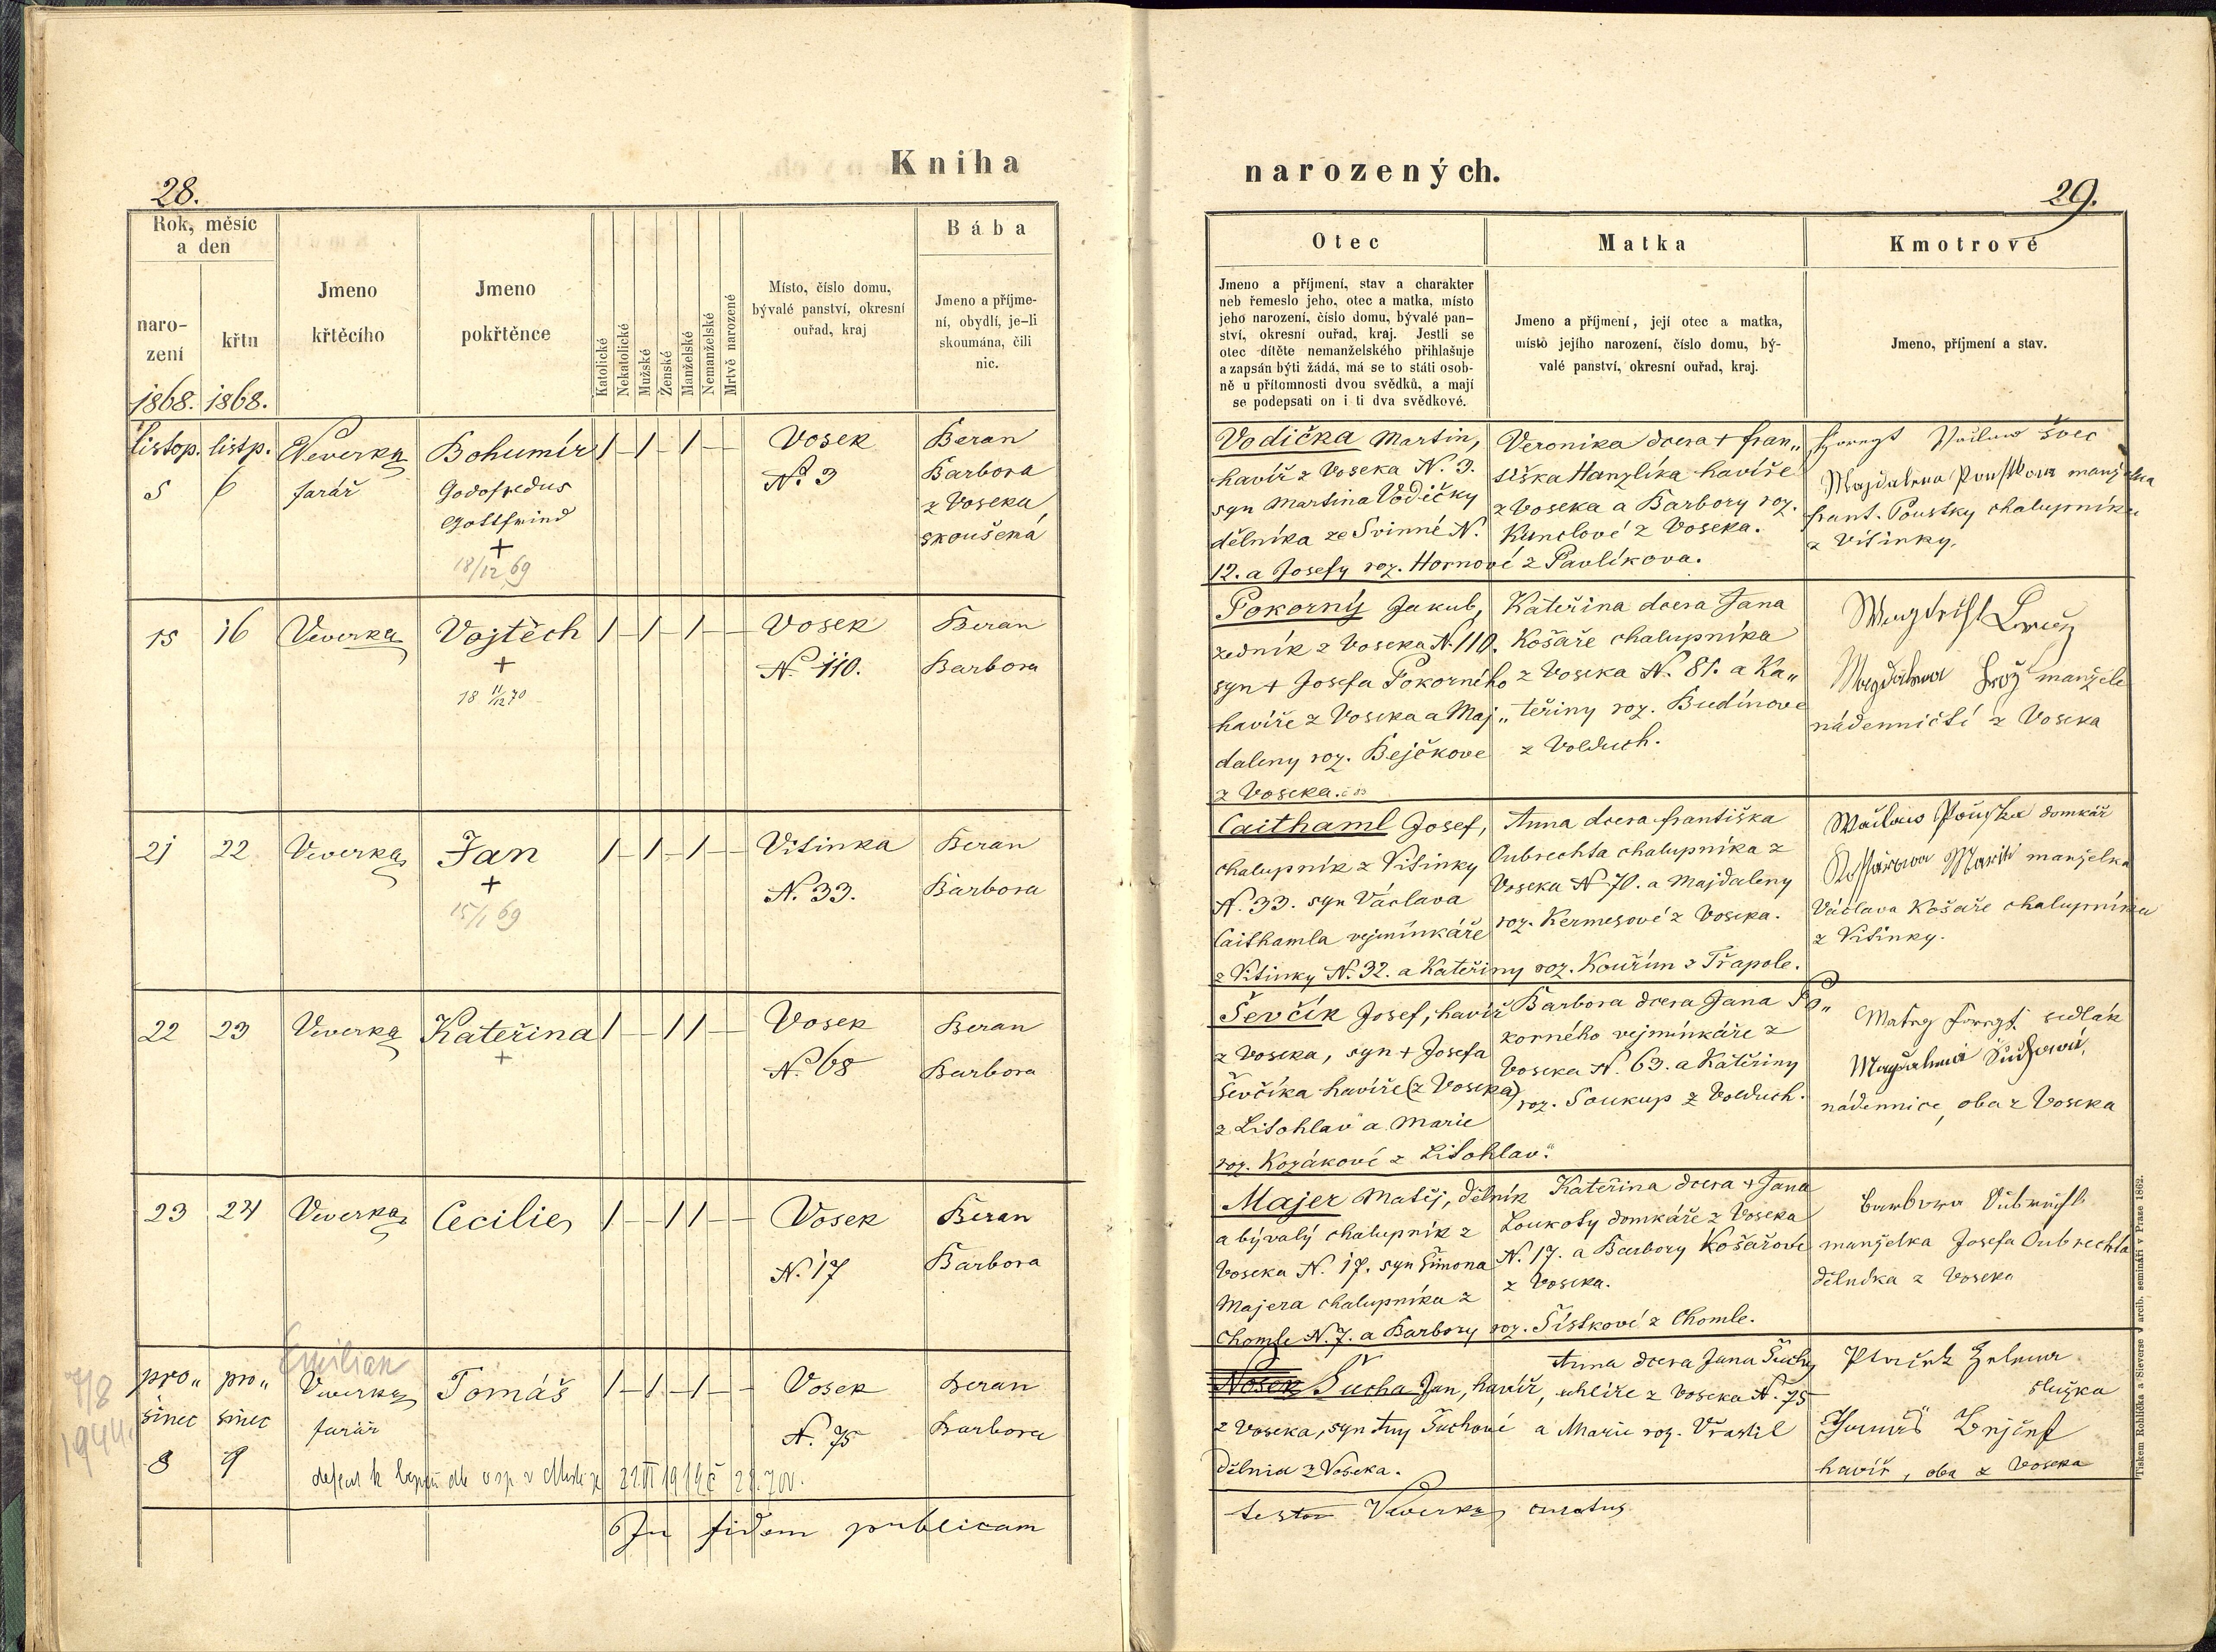 Kniha
28.
Rok, měsíc
a den
naro-
zení
křtu
1868. 1868.
Jmeno
křtěcího
Jmeno
pokřtěnce
Katolické
Nekatolické
Mužské
Ženské
Manželské
Nemanželské
Mrtvě narozené
Místo, číslo domu,
bývalé panství, okresní
ouřad, kraj
Bába
Jmeno a příjme-
ní, obydlí, je-li
skoumána, čili
nic.
listop. listp. Veverka Bohumír 1 – 1 – 1 – Vosek Beran
5 6 farář Godofredus N. 3 Barbora
Gottfried z Voseka,
+ skoušená
18/12 69
15 16 Veverka Vojtěch 1 – 1 – 1 – – Vosek Beran
+ N. 110. Barbora
18 11/12 70
21 22 Veverka Jan 1 – 1 – 1 – – Vitinka Beran
+ N. 33. Barbora
15/1 69
22 23 Veverka Kateřina 1 – – 1 1 – Vosek Beran
+ N. 68 Barbora
23 24 Veverka Cecilie 1 – – 1 1 – – Vosek Beran
N. 17 Barbora
Emilian
7/8
1944.
pro„ pro„ Veverka Tomáš 1 – 1 – 1 – – Vosek Beran
sinec sinec farář N. 75 Barbora
8 9
In fidem publicam
narozených.
29.
Otec
Jmeno a příjmení, stav a charakter
neb řemeslo jeho, otec a matka, místo
jeho narození, číslo domu, bývalé pan-
ství, okresní ouřad, kraj. Jestli se
otec dítěte nemanželského přihlašuje
a zapsán býti žádá, má se to státi osob-
ně u přítomnosti dvou svědků, a mají
se podepsati on i ti dva svědkové.
Matka
Jmeno a příjmení, její otec a matka,
místo jejího narození, číslo domu, bý-
valé panství, okresní ouřad, kraj.
Kmotrové
Jmeno, příjmení a stav.
Vodička Martin,
havíř z Voseka N. 3.
syn Martina Vodičky
dělníka ze Svinné N.
12. a Josefy roz. Hornové z Pavlíkova.
Veronika dcera + fran„
tiška Hanzlíka havíře
z Voseka a Barbory roz.
Kunclové z Voseka.
švec
manželka
frant. Poustky chalupníka
z Vitinky.
Pokorný Jakub,
zedník z Voseka N. 110.
syn + Josefa Pokorného
havíře z Voseka a Maj„
daleny roz. Bejčkove
z Voseka.
Kateřina dcera Jana
Košaře chalupníka
z Voseka N. 81. a Ka„
teřiny roz. Budínove
z Volduch.
manželé
nádenničtí z Voseka
Caithaml Josef,
chalupník z Vitinky
N. 33. syn Václava
Caithamla vejmínkáře
z Vitinky N. 32. a Kateřiny roz. Kouřím z Třapole.
Anna dcera františka
Oubrechta chalupníka z
Voseka N 70. a Majdaleny
roz. Kermesové z Voseka.
domkář
manželka
Václava Košaře chalupníka
z Vitinky.
Ševčík Josef, havíř
z Voseka, syn + Josefa
Ševčíka havíře (z Voseka)
z Litohlav a Marie
roz. Kozákové z Litohlav.
Barbora dcera Jana Po„
korného vejmínkáře z
Voseka N. 63. a Kateřiny
roz. Soukup z Volduch.
sedlák
nádennice, oba z Voseka
Majer Matěj, dělník
a bývalý chalupník z
Voseka N. 17. syn Šimona
Majera chalupníka z
Chomle N. 7. a Barbory roz. Šístkové z Chomle.
Kateřina dcera + Jana
Loukoty domkáře z Voseka
N. 17. a Barbory Košařove
z Voseka.
manželka Josefa Oubrechta
dělníka z Voseka
Nosek Sucha Jan, havíř,
z Voseka, syn Any Suchové
dělnice z Voseka.
Anna dcera Jana Suchy
uhlíře z Voseka N. 75
a Marie roz. Vrastil
služka
havíř, oba z Voseka
testor Veverka curatus
Tiskem Rohlíčka a Sieverse v arcib. semináři v Praze 1862.